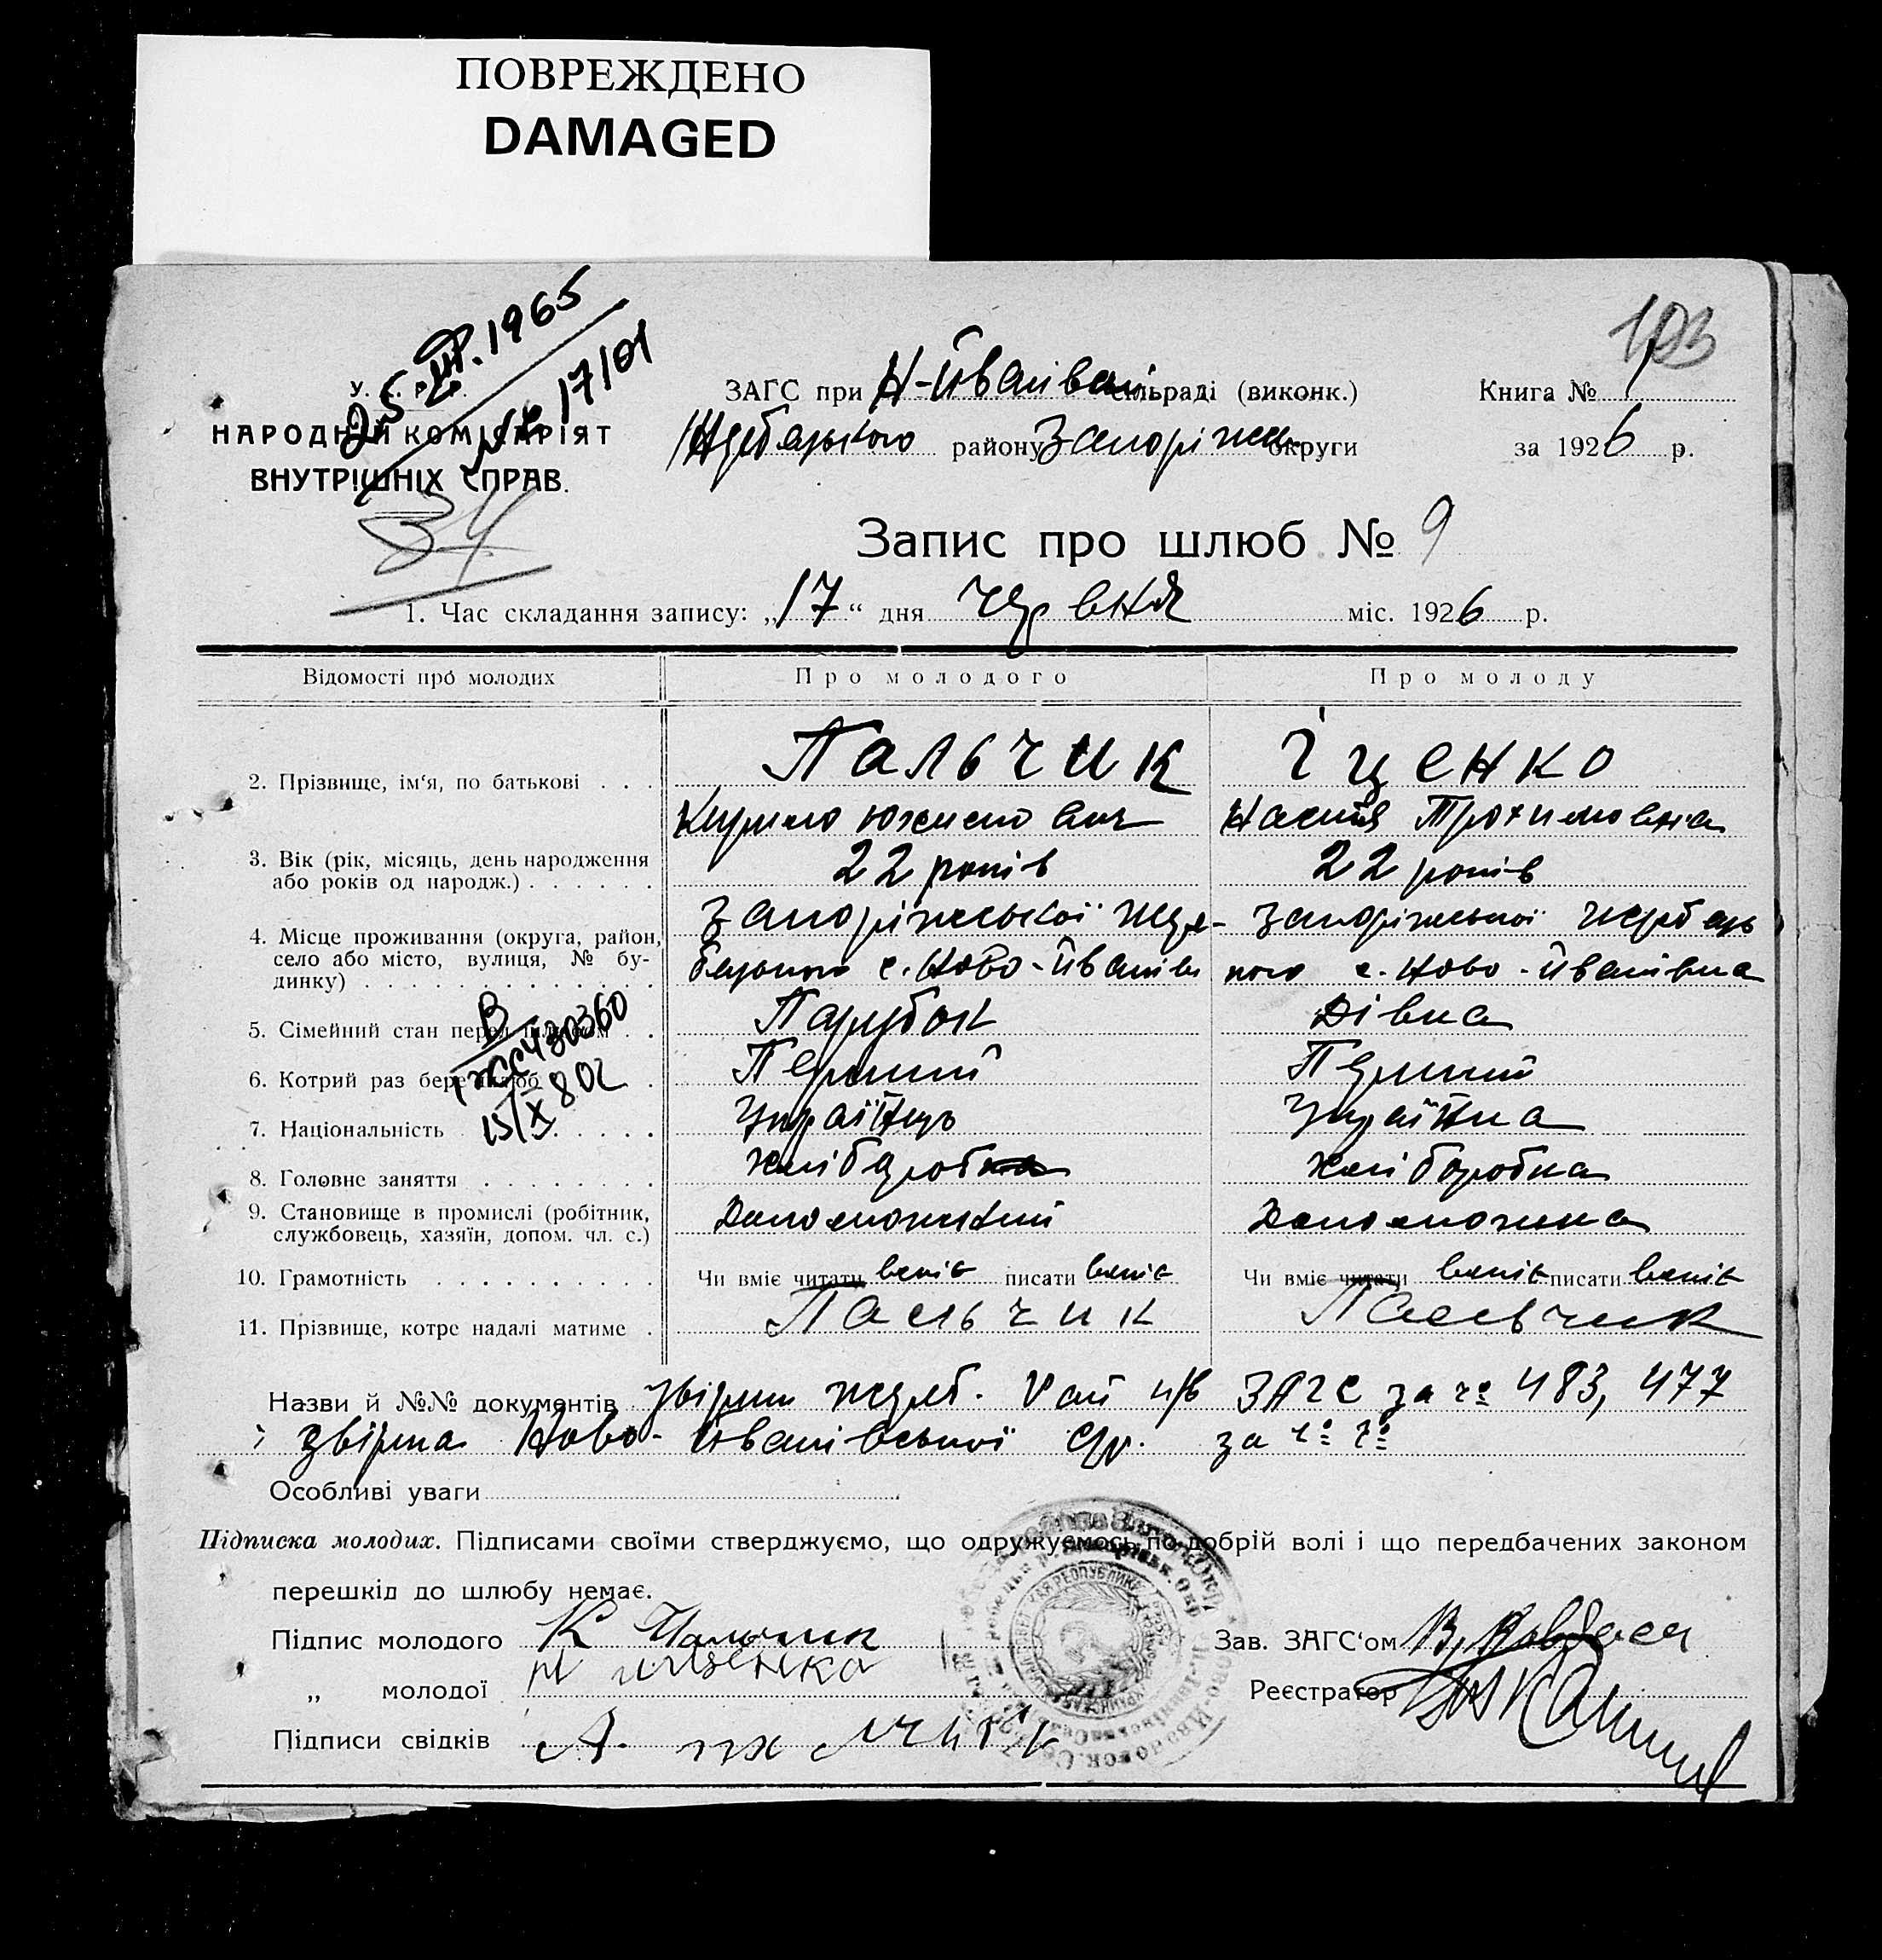 ПОВРЕЖДЕНО
DAMAGED
25 1965
17/01
103
У. С. Р. Р.
НАРОДНІЙ КОМІСАРІЯТ
ВНУТРІШНІХ СПРАВ.
34
ЗАГС при Н-Йванівал сільраді (виконк.)
Книга № 1
району Запоріжж округи
за 1926 р.
Запис про шлюб № 9
1. Час складання запису: „17“ дня червня міс. 1926 р.
Відомості про молодих Про молодого Про молоду
2. Прізвище, ім‘я, по батькові . . . Пальчик Іценко
Кирило Настя Трохимовна
3. Вік (рік, місяць, день народження
або років од народж.) . . . . . . 22 років 22 років
4. Місце проживання (округа, район,
село або місто, вулиця, № бу-
динку) . . . . . . . . . . . . .
Запоріжської Жере- Запоріжської Жеребець
бецького с. Ново-Йванівк кого с. Ново-Йванівка
5. Сімейний стан перед шлюбом . . Парубок Дівка
6. Котрий раз бере шлюб . Перший Перший
7. Національність . . . . . . Українець Українка
430360
15/X 802
8. Головне заняття . . . . . . . . хліборобка хліборобка
9. Становище в промислі (робітник,
службовець, хазяїн, допом. чл. с.) Допоможний Допоможна
10. Грамотність . . . . . . . . . . Чи вміє читати вміє писати вміє Чи вміє читати вміє писати вміє
11. Прізвище, котре надалі матиме . Пальчик Пальчик
Назви й №№ документів Звірки Жереб. Рай ЗАГС за 483, 477
і звірка Ново-Йванівської за
Особливі уваги
Підписка молодих. Підписами своїми стверджуємо, що одружуємось по добрій волі і що передбачених законом
перешкід до шлюбу немає.
Підпис молодого К Пальчик
Зав. ЗАГС‘ом В.
„ молодої
Реєстратор
Підписи свідків А.